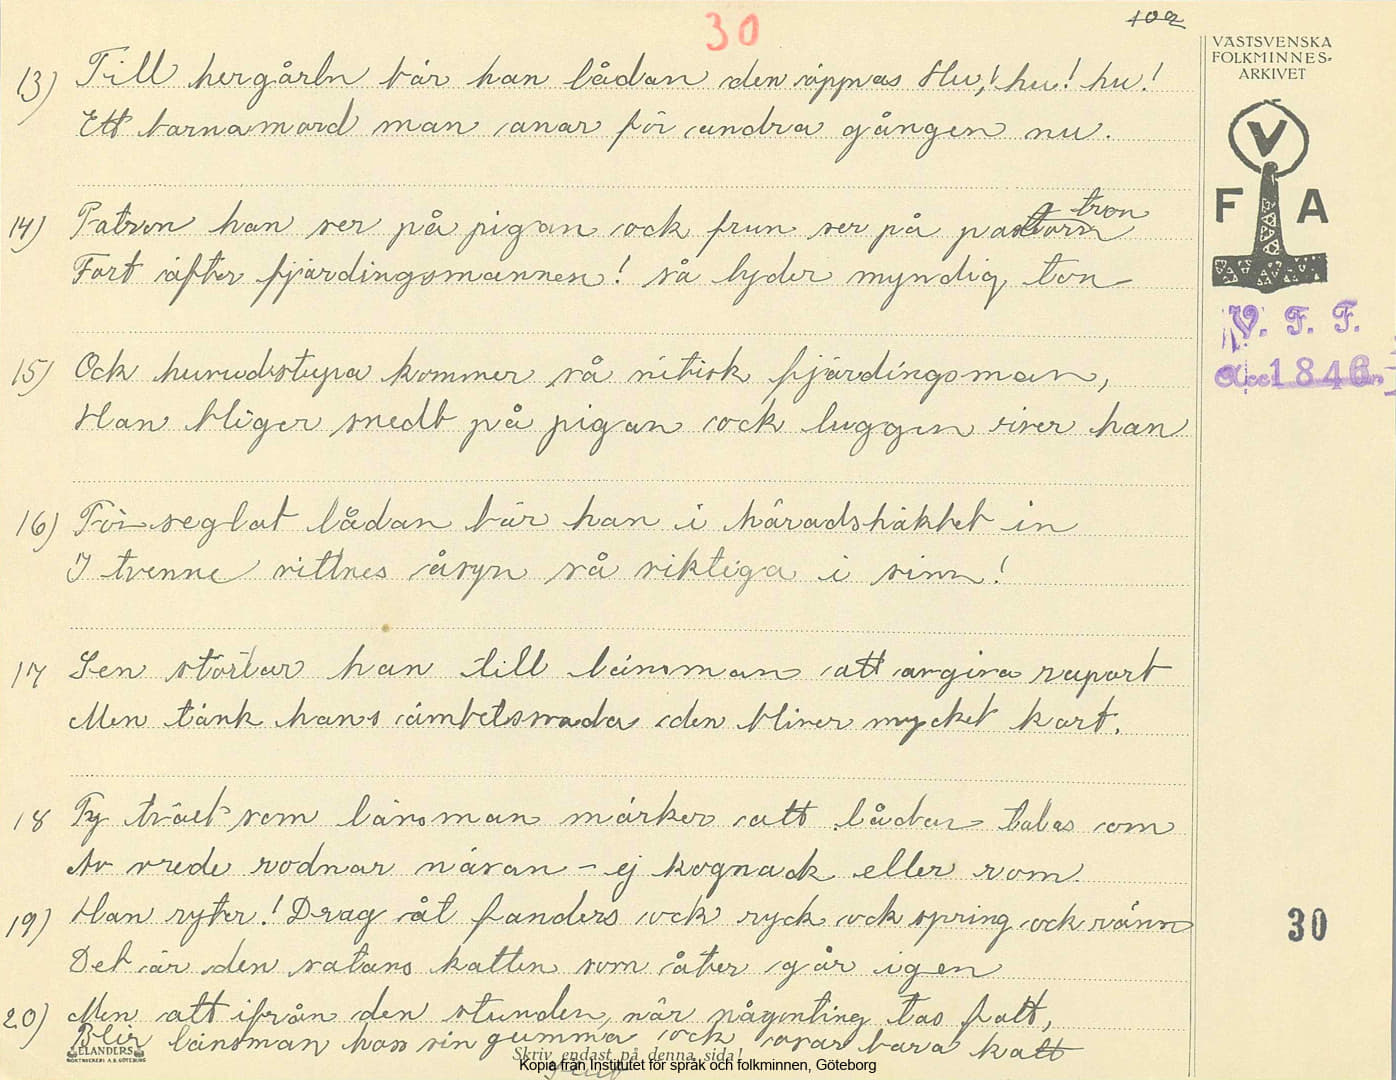 30
102
VÄSTSVENSKA
FOLKMINNES-
ARKIVET
V
F A
V. F. F.
Acc 1846
13) Till hergårln bär han lådan den öppnas Hu,! hu! hu!
Ett barnamord man anar för andra gången nu.
14) Patron han ser på pigan ock frun ser på pa tron
Fort äfter fjärdingsmannen! så lyder myndig ton
15) Ock huvudstupa kommer så nitisk fjärdingsman,
Han bliger snedt på pigan ock luggen river han
16) För seglat lådan bär han i häradshäktet in
I tvenne vittnes åsyn så riktiga i sinn!
17 Sen störtar han till länsman att avgiva raport
Men tänk hans ämbetsmada den bliver mycket kort.
18 Ty träet som länsman märker att lådan talas om
Av vrede rodnar näsan – ej kognack eller rom
19) Han ryter! Drag åt fanders ock ryck ock spring ock ränn
Det är den satans katten som åter går igen
20) Men att ifrån den stunden, när någonting tas fatt,
Blir länsman hos sin gumma ock svar bara katt
30
ELANDERS
BOKTRYCKERI A.B. GÖTEBORG
Skriv endast på denna sida!
Kopia från Institutet för språk och folkminnen, Göteborg